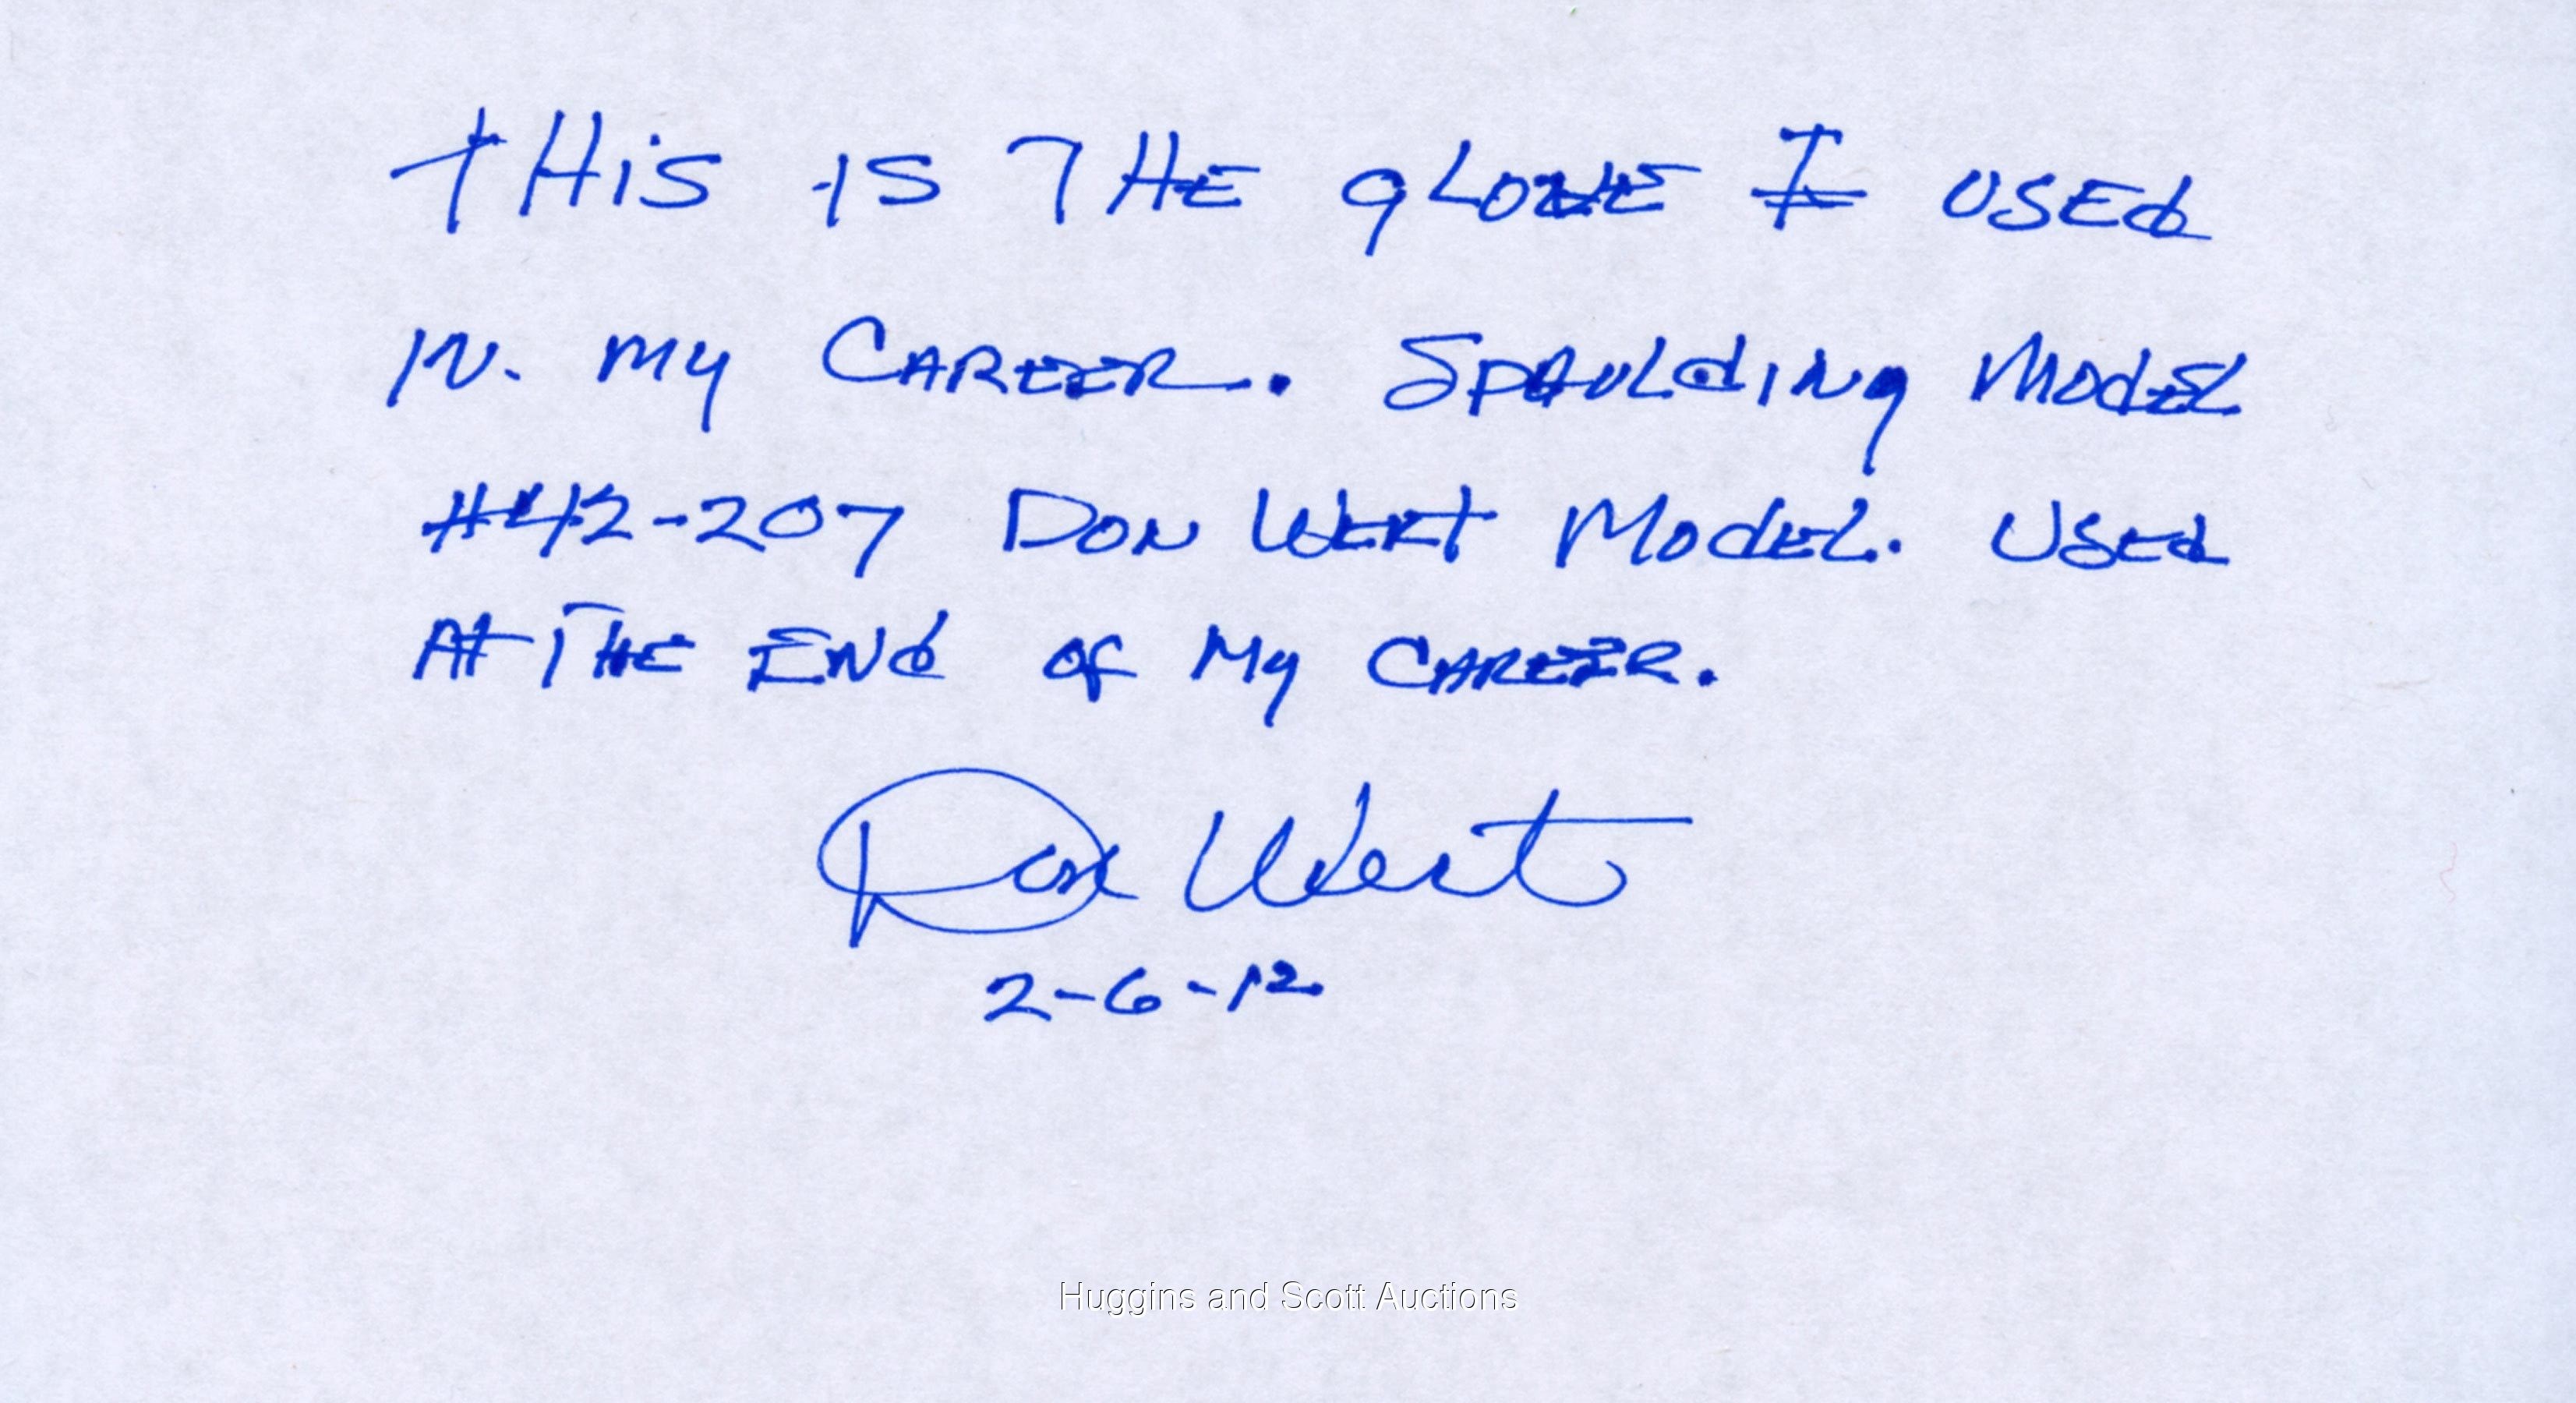 THiS iS THE gLOVE I USEd
IN. My CAREER. SPAULdiNg ModEL
#42-207 DON WERT ModEL. USEd
At THE ENd of My CAREER.
Don Wert
2-6-12
Huggins and Scott Auctions